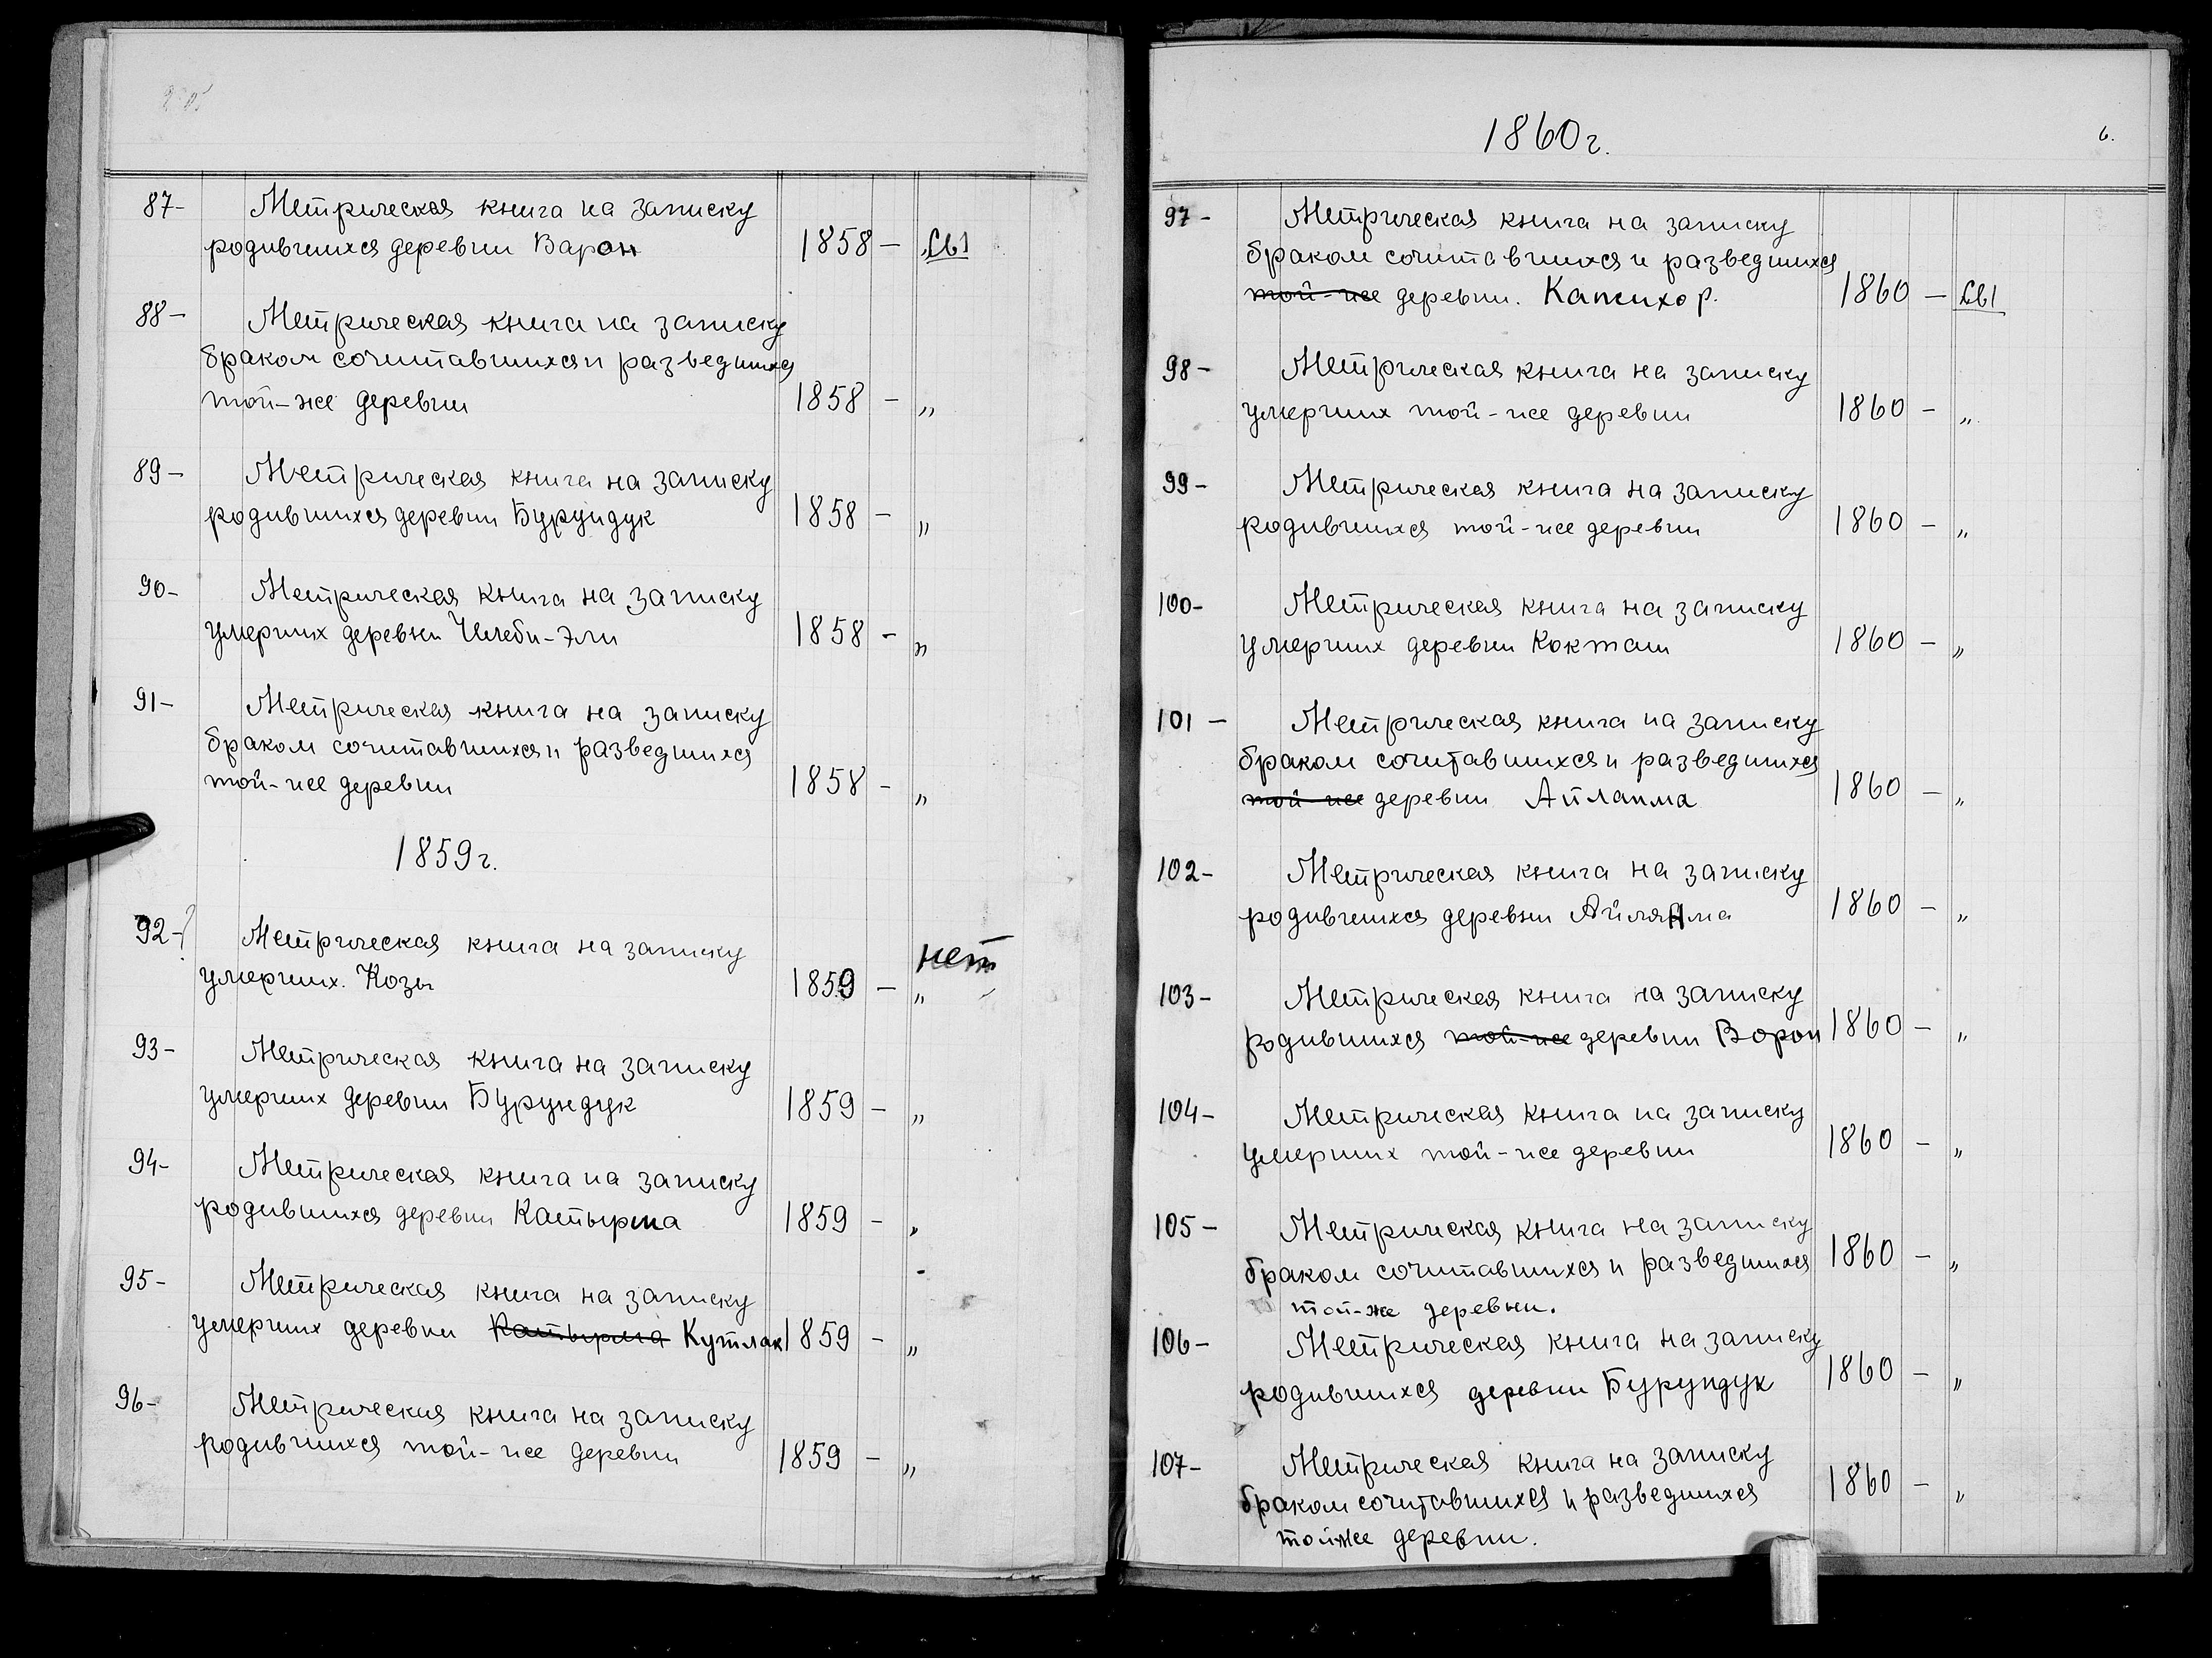 87- Метрическая книга на записку
родившихся деревни Варон 1858 -
88- Метрическая книга на записку
браком сочитавшихся и разведшихся
той-же деревни 1858 - „
89- Метрическая книга на записку
родившихся деревни Бурундук 1858 - „
90- Метрическая книга на записку
умерших деревни Челеби-Эли 1858 - „
91- Метрическая книга на записку
браком сочитавшихся и разведшихся
той-же деревни 1858 - „
1859г.
92-? Метрическая книга на записку нет
умерших. Козы 1859 - „
93- Метрическая книга на записку
умерших деревни Бурундук 1859 - „
94- Метрическая книга на записку
родившихся деревни Катырша 1859 - „
95- Метрическая книга на записку
умерших деревни Катырша Кутлак 1859 - „
96- Метрическая книга на записку
родившихся той-же деревни 1859 - „
1860г. 6.
97- Метрическая книга на записку
браком сочитавшихся и разведшихся
той-же деревни. Капсихор. 1860 -
98- Метрическая книга на записку
умерших той-же деревни 1860 - „
99- Метрическая книга на записку
родившихся той-же деревни 1860 - „
100- Метрическая книга на записку
умерших деревни Кокташ 1860 - „
101- Метрическая книга на записку
браком сочитавшихся и разведшихся
той-же деревни Айланма 1860 - „
102- Метрическая книга на записку
родившихся деревни Айлянма 1860 - „
103- Метрическая книга на записку
родившихся той-же деревни Ворон 1860 - „
104- Метрическая книга на записку
умерших той-же деревни 1860 - „
105- Метрическая книга на записку
браком сочитавшихся и разведшихся 1860 - „
той-же деревни.
106- Метрическая книга на записку
родившихся деревни Бурундук 1860 - „
107- Метрическая книга на записку
браком сочитавшихся и разведшихся 1860 - „
тойже деревни.